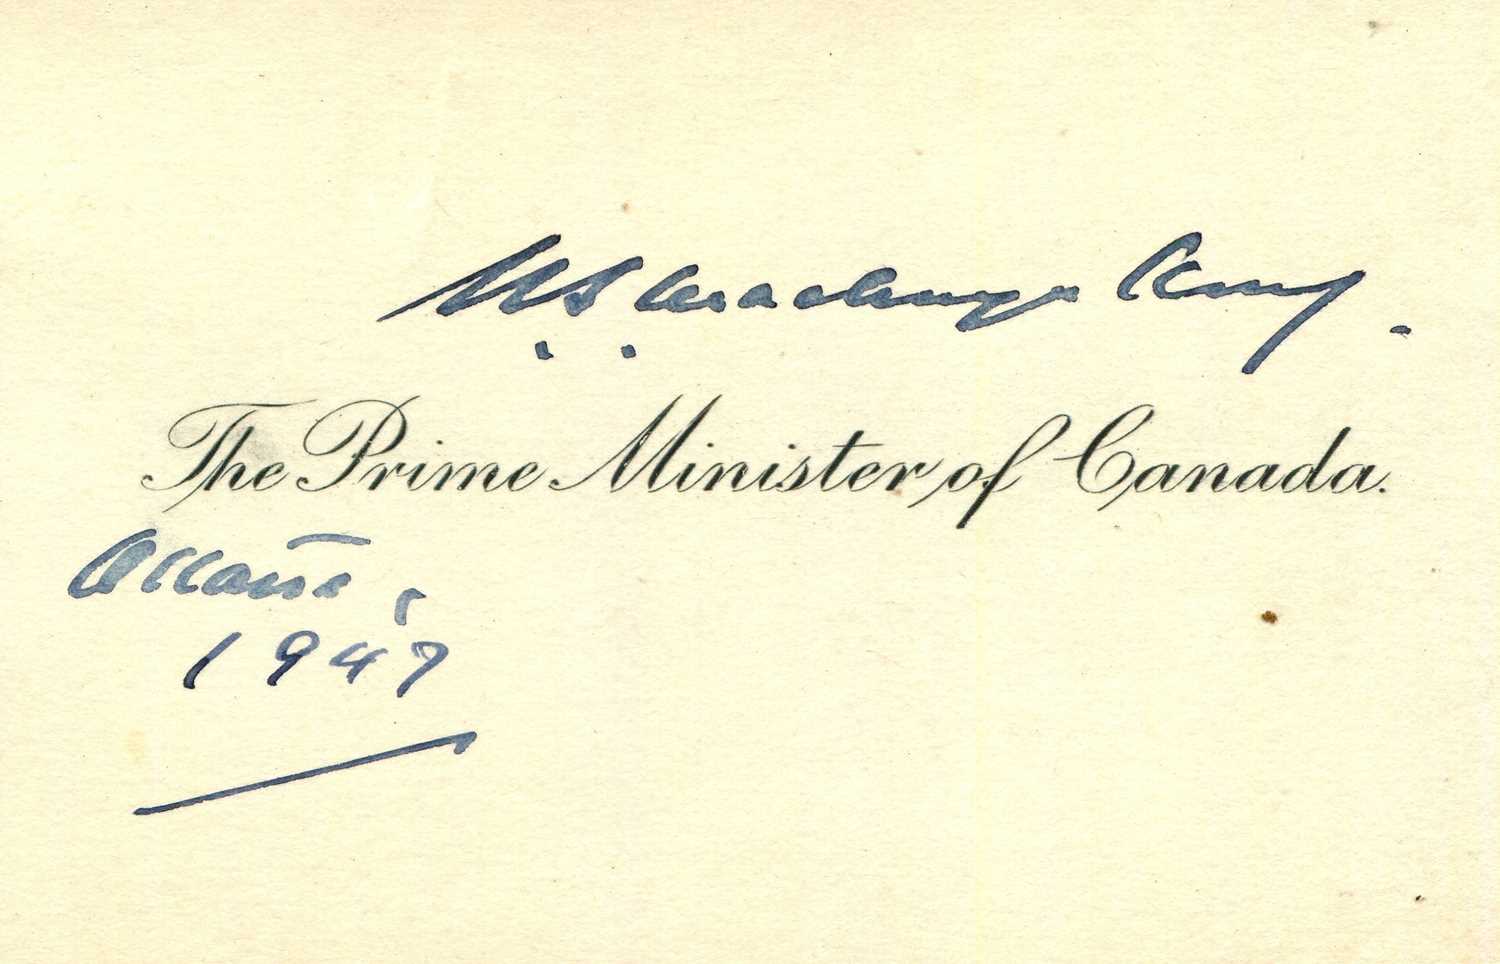 W.L. Mackenzie King.
The Prime Minister of Canada.
Ottawa,
1947